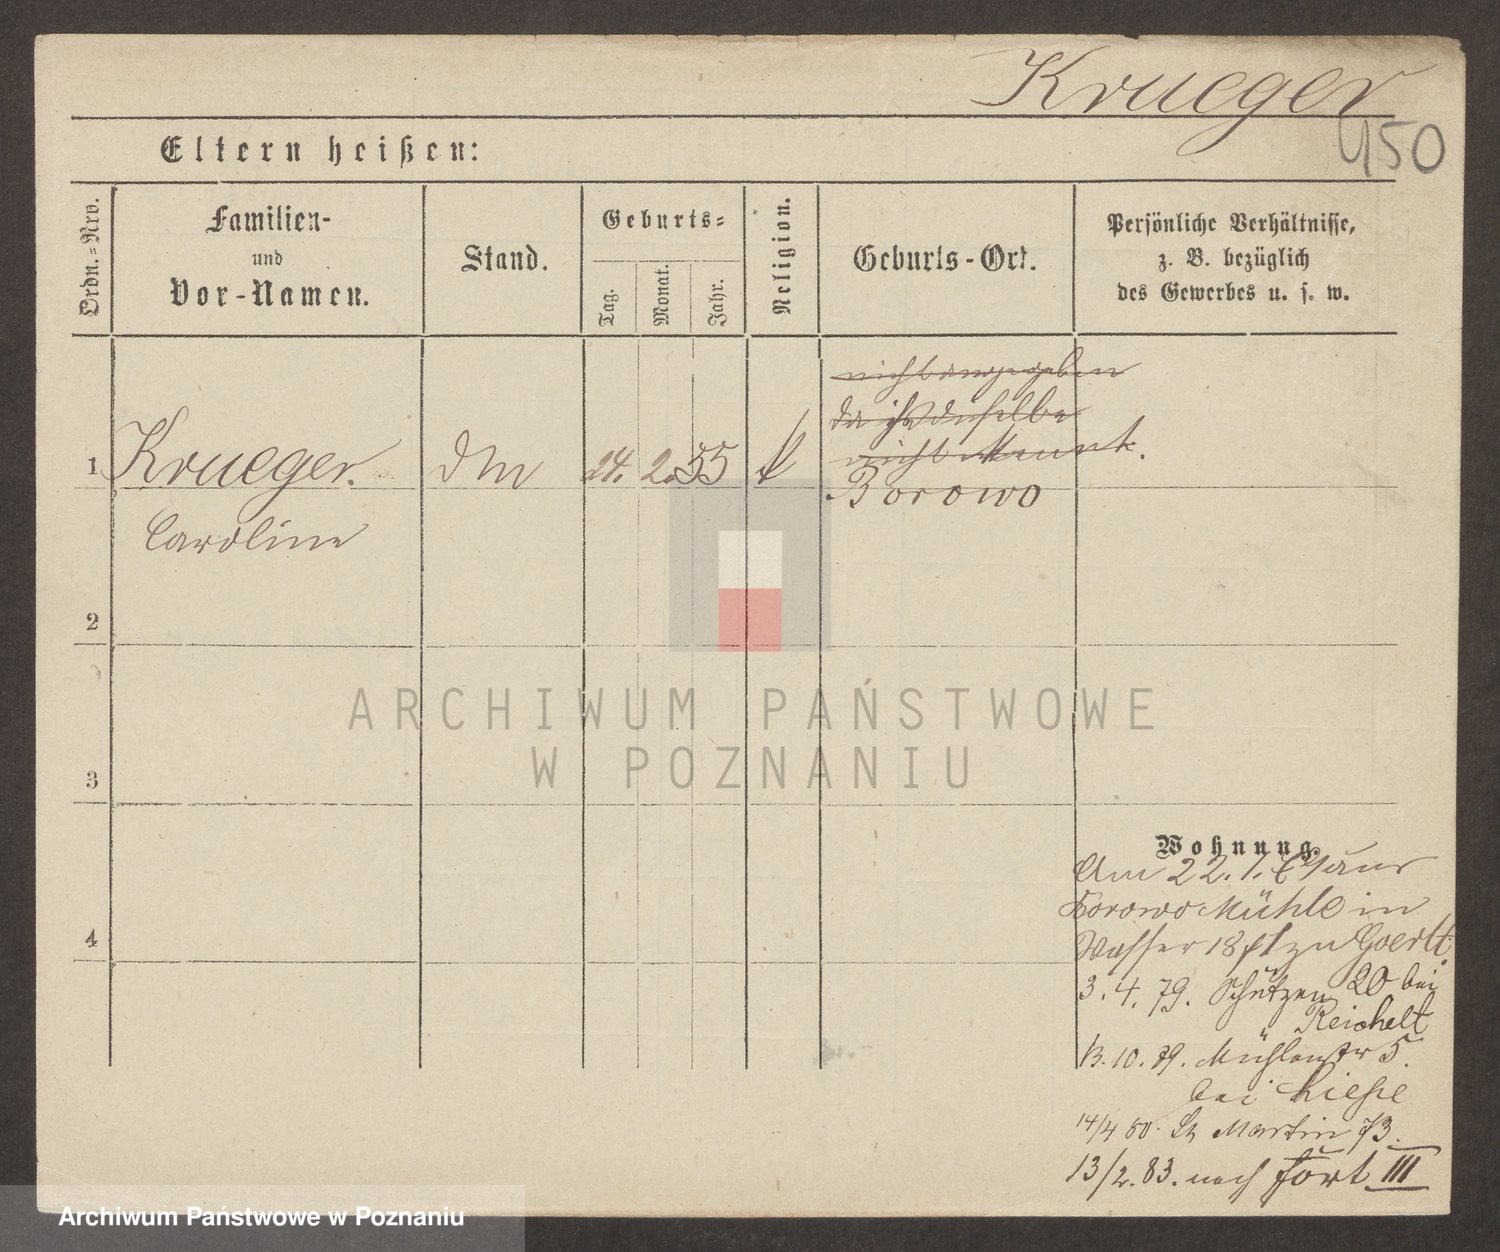 Krueger
450
Eltern heißen:
Ordn.=Nro.
Familien-
und
Vor-Namen.
Stand.
Geburts=
Tag.
Monat.
Jahr.
Religion.
Geburts-Ort.
Persönliche Verhältnisse,
z. B. bezüglich
des Gewerbes u. s. w.
nicht angegeben
da ihr dieselbe
nicht bekannt.
1 Krueger. 24. 2. 55 Borowo
Caroline
2
3
4
Wohnung.
Am 22. 1. aus
Borowo Mühle in
Wasser 18 zu Goerlt.
3. 4. 79. Schützen 20 bei
Reichelt
13. 10. 79. Mühlenstr 5.
bei Liehse
14/4 80. St Martin 73.
13/2. 83. nach Fort III
ARCHIWUM PAŃSTWOWE
W POZNANIU
Archiwum Państwowe w Poznaniu